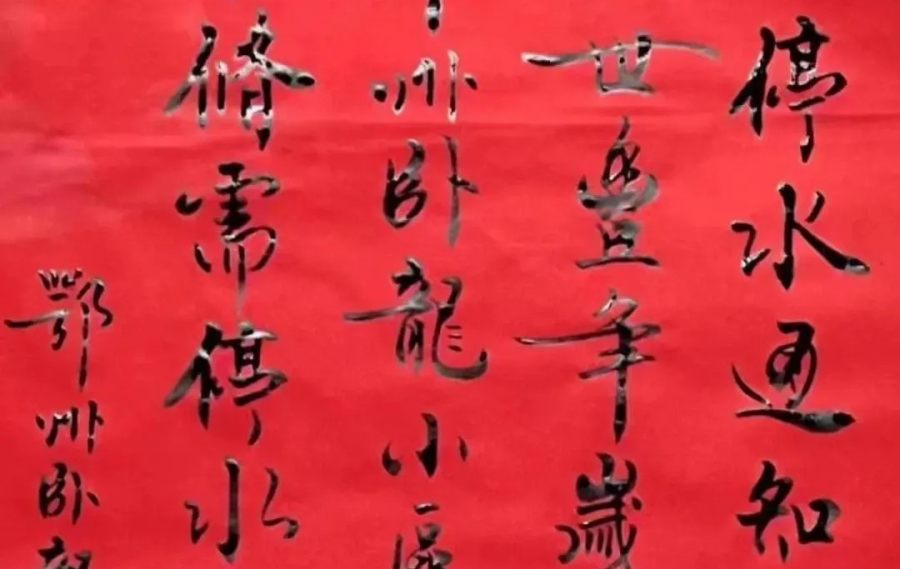 停水通知
世豊年歲
州卧龍小區
脩需停水
鄂州卧龍